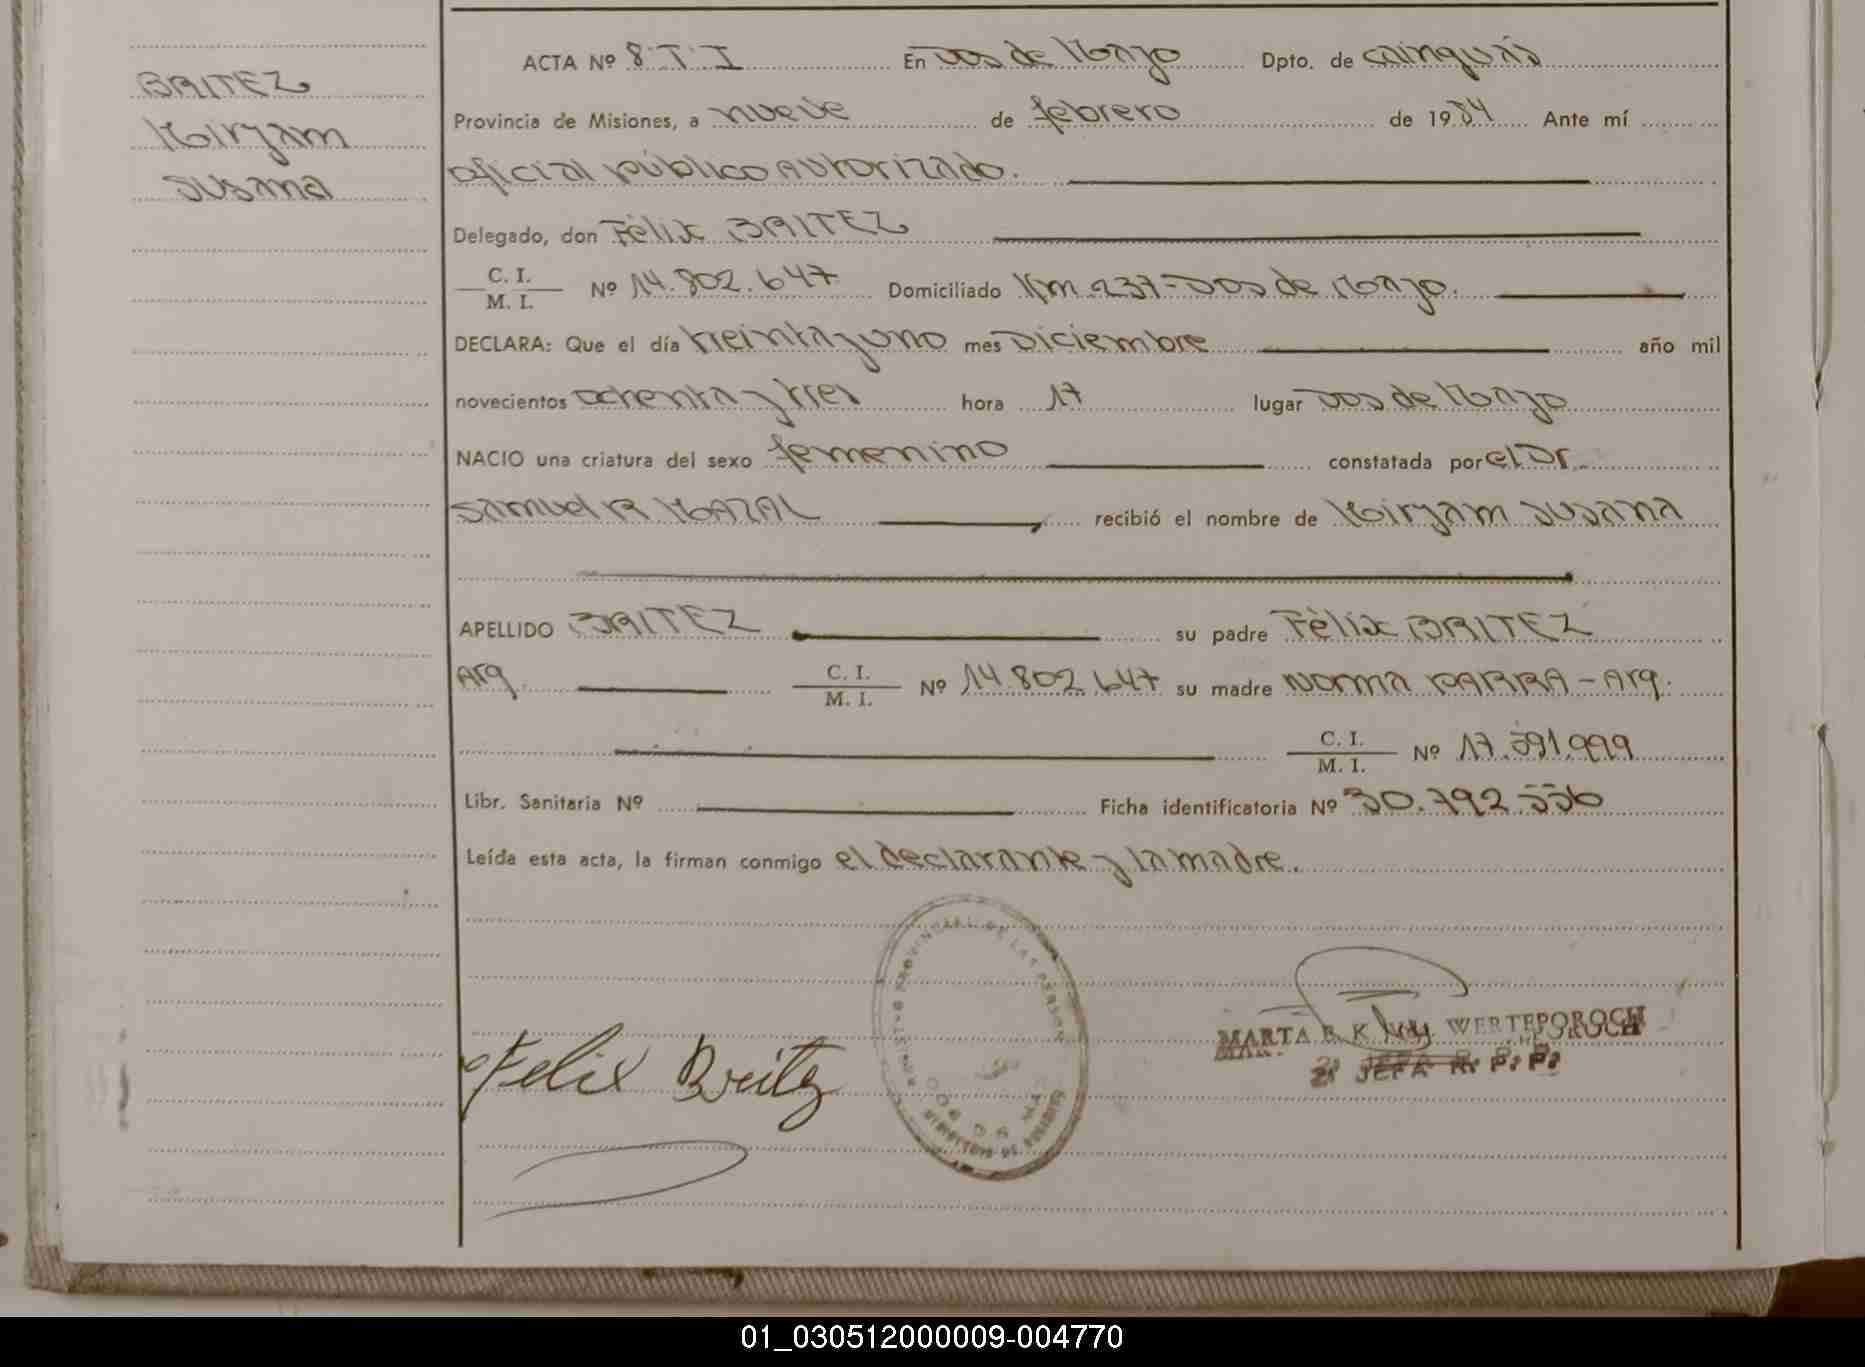 BRITEZ
Miryam
Susana
ACTA Nº 8·T·I En Dos de Mayo Dpto. de Cainguás
Provincia de Misiones, a nueve de febrero de 1984 Ante mí
oficial público autorizado.
Delegado, don Félix BRITEZ
C. I.
M. I. Nº 14.802.647 Domiciliado Km 237-Dos de Mayo.
DECLARA: Que el día treinta y uno mes Diciembre año mil
novecientos ochenta y tres hora 17 lugar Dos de Mayo
NACIO una criatura del sexo femenino constatada por el Dr.
Samuel R MAZAL recibió el nombre de Miryam Susana
APELLIDO BRITEZ su padre Félix BRITEZ
Arg. C. I.
M. I. Nº 14.802.647 su madre Norma PARRA - Arg.
C. I.
M. I. Nº 17.391.999
Libr. Sanitaria Nº Ficha identificatoria Nº 30.792.536
Leída esta acta, la firman conmigo el declarante y la madre.
REGISTRO PROVINCIAL DE LAS PERSONAS
Felix Britez
MARTA B. K WERTEPOROCH
2. JEFA R. P. P.
01_030512000009-004770